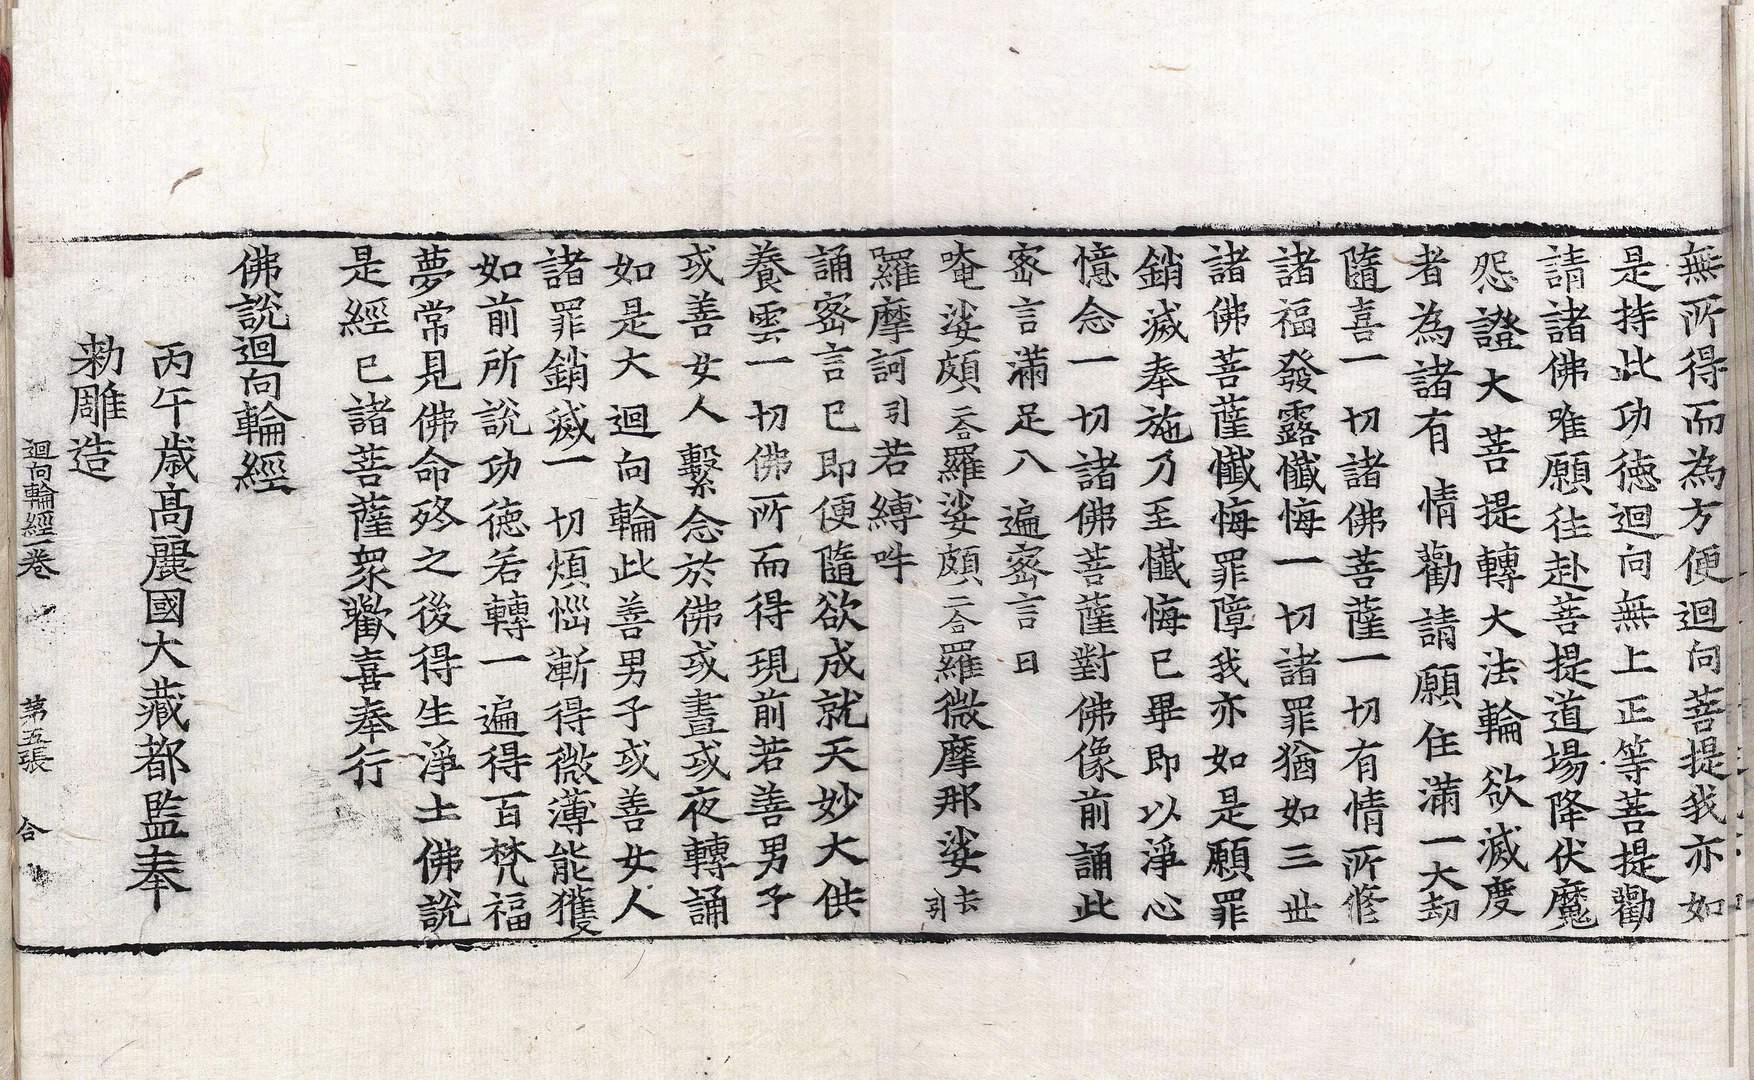 無所得而為方便迴向菩提我亦如
是持此功徳迴向無上正等菩提勸
請諸佛唯願往赴菩提道場降伏魔
怨證大菩提轉大法輪欲滅度
者為諸有情勸請願住滿一大劫
隨喜一切諸佛菩薩一切有情所修
諸福發露懺悔一切諸罪猶如三世
諸佛菩薩懺悔罪障我亦如是願罪
銷滅奉施乃至懺悔已畢即以淨心
憶念一切諸佛菩薩對佛像前誦此
密言滿足八遍密言曰
唵娑頗二合羅娑頗二合羅微摩那娑去引
囉摩訶引若縛吽
誦密言已即便隨欲成就天妙大供
養雲一切佛所而得現前若善男子
或善女人繫念於佛或晝或夜轉誦
如是大迴向輪此善男子或善女人
諸罪銷滅一切煩惱漸得微薄能獲
如前所說功徳若轉一遍得百梵福
夢常見佛命終之後得生淨土佛說
是經已諸菩薩衆歡喜奉行
佛說迴向輪經
丙午歳高麗國大藏都監奉
勅雕造
迴向輪經卷 第五張 合